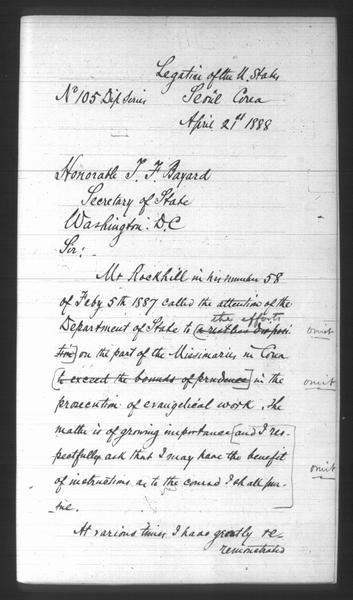 Legation of the U. States
No 105 Dip Series Seoul Corea
April 21st 1888
Honorable T. F. Bayard
Secretary of State
Washington: D.C
Sir:
Mr Rockhill in his number 58
of Feby 5th 1887 called the attention of the
the efforts
Department of State to (a restless disposi
omit
tion) on the part of the Missionaries in Corea
(to exceed the bounds of prudence) in the
omit
prosecution of evangelical work. The
matter is of growing importance (and I res-
pectfully ask that I may have the benefit
of instructions as to the course I shall pur-
omit
sue.
At various times I have greatly re-
remonstrated